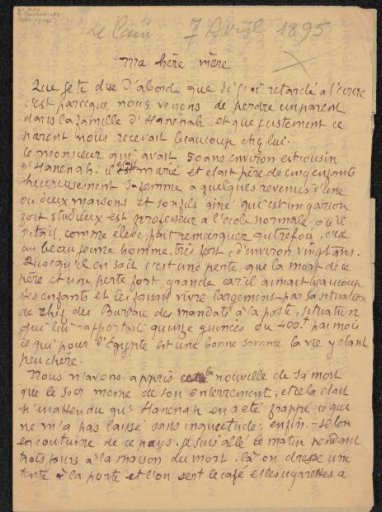 Le Caire 7 Avril 1895
Ma chère mère
Que je te dise d'abord que si j'ai retardé à t'écrire
c'est parceque nous venons de perdre un parent
dans la famille d'Hanenah et que justement ce
parent nous recevait beaucoup chez lui.
le monsieur qui avait 50 ans environ est cousin
d'Hanenah. Il était marié et était père de cinq enfants
heureusement sa femme a quelques revenus d'une
ou deux maisons et son fils ainé qui est un garçon
fort studieux est professeur à l'école normale où il
s'était comme élève fait remarquer autrefois, c'est
un beau jeune homme, très fort, d'environ vingt ans.
Quoiqu'il en soit c'est une perte que la mort de ce
père et une perte fort grande car il aimait beaucoup
ses enfants et les faisait vivre largement par sa situation
de chef du Bureau des mandats à la poste, situation
qui lui rapportait quinze guinées ou 400f par mois
ce qui pour l'Egypte est une bonne somme la vie y étant
peu chère.
Nous n'avons appris cette nouvelle de sa mort
que le soir même de son enterrement, et cela était
si inattendu qu' Hanenah en a été frappée ce qui
ne m'a pas laissé sans inquiétude: enfin, selon
la coutume de ce pays, je suis allé le matin pendant
trois jours à la maison du mort, là on dresse une
tente à la porte et l'on sert le café et les cigarettes à